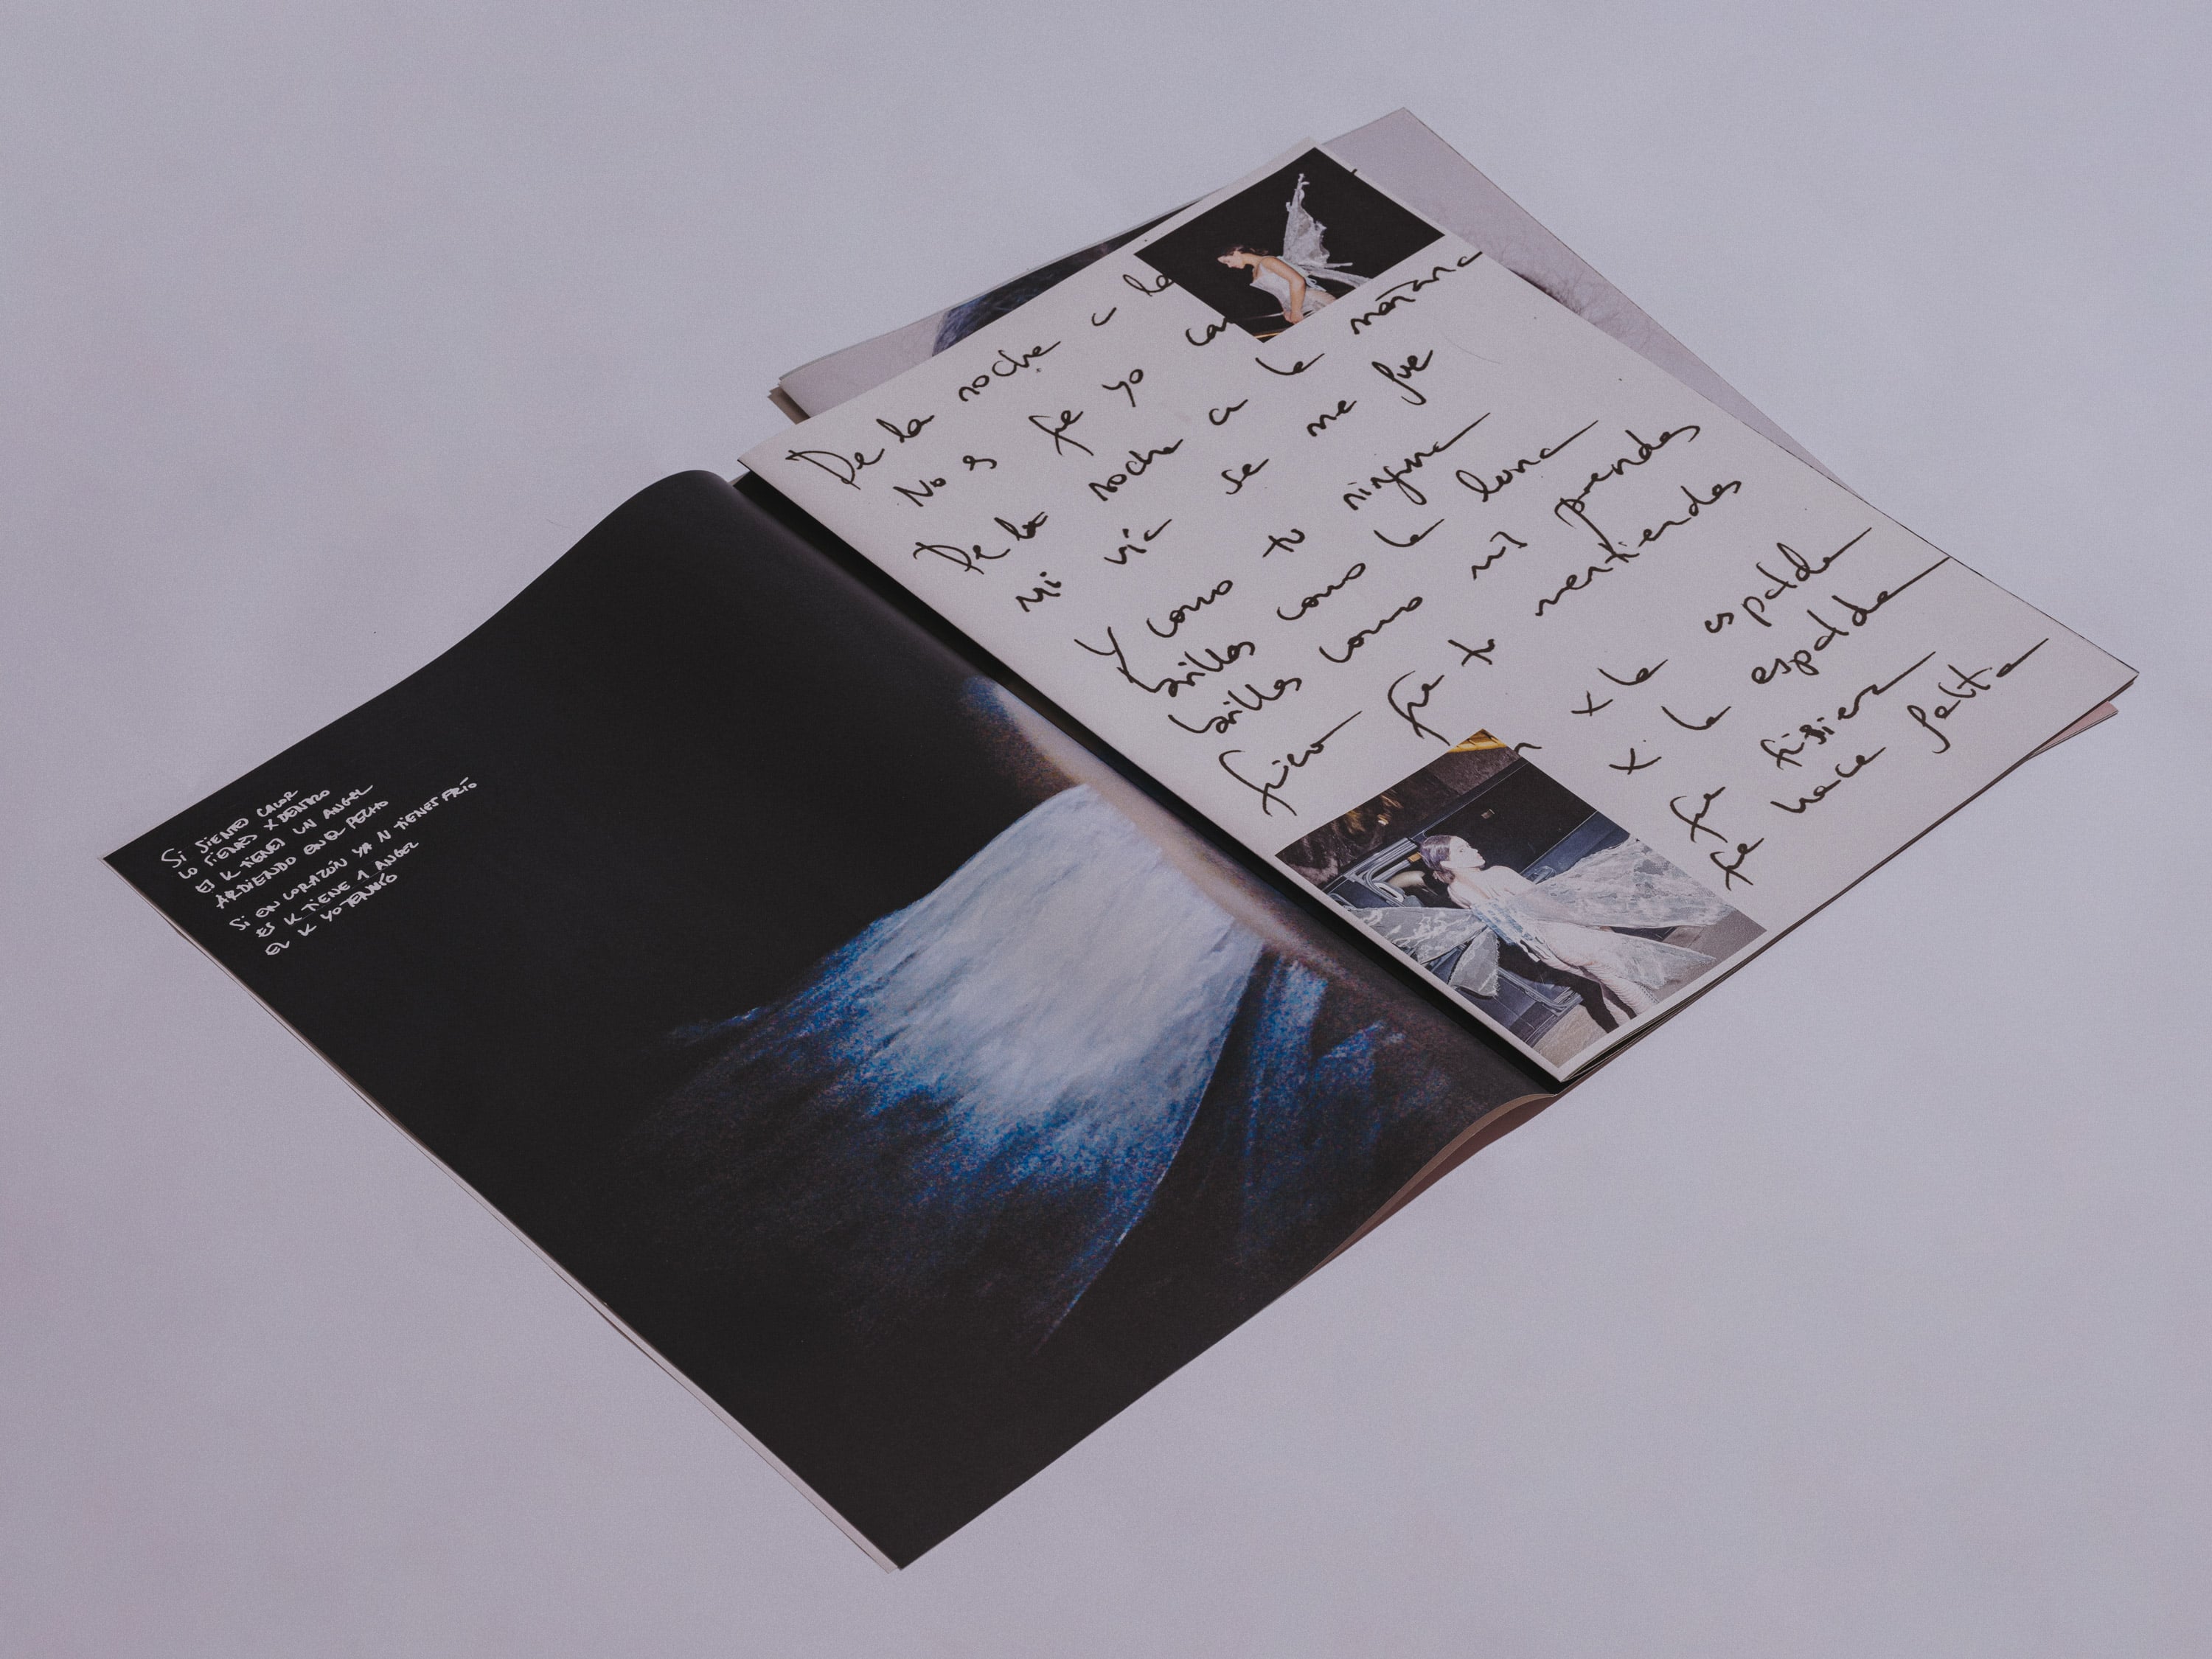 Si SIENTO CALOR
LO TIENES X DENTRO
ES K TIENES UN ANGEL
ARDIENDO EN EL PECHO
Si EN CORAZÓN YA N TIENES FRÍO
ES K TIENE 1 ANGEL
EL K YO
De la noche a la
No es qe yo
De la noche a la mañana
Mi vía se me fue
Y como tu ninguna
brillas como la luna
brillas como mis prendas
qiero qe tu mentiendas
x la espalda
x la espalda
qe qisiera
qe hace falta